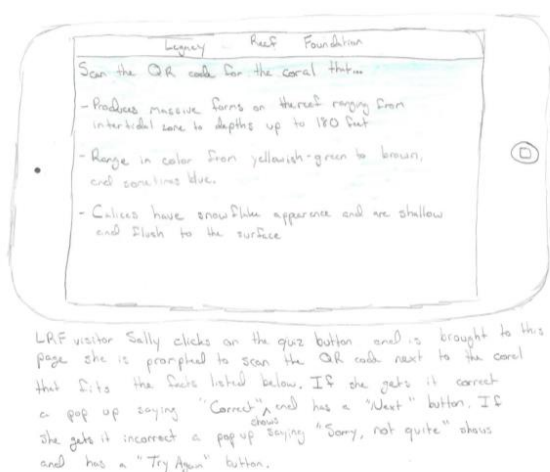 Legacy Reef Foundation
Scan the QR code for the coral that...
- Produces massive forms on the reef ranging from
intertidal zone to depths up to 180 feet
- Range in color from yellowish-green to brown,
and sometimes blue.
- Calices have snowflake apperence and are shallow
and flush to the surface
LRF visitor Sally clicks on the quiz button and is brought to this
page she is prompted to scan the QR code next to the coral
that fits the facts listed below. If she gets it correct
a pop up saying "Correct" ^ shows and has a "Next" button. If
she gets it incorrect a pop up saying "Sorry, not quite" shows
and has a "Try Again" button.